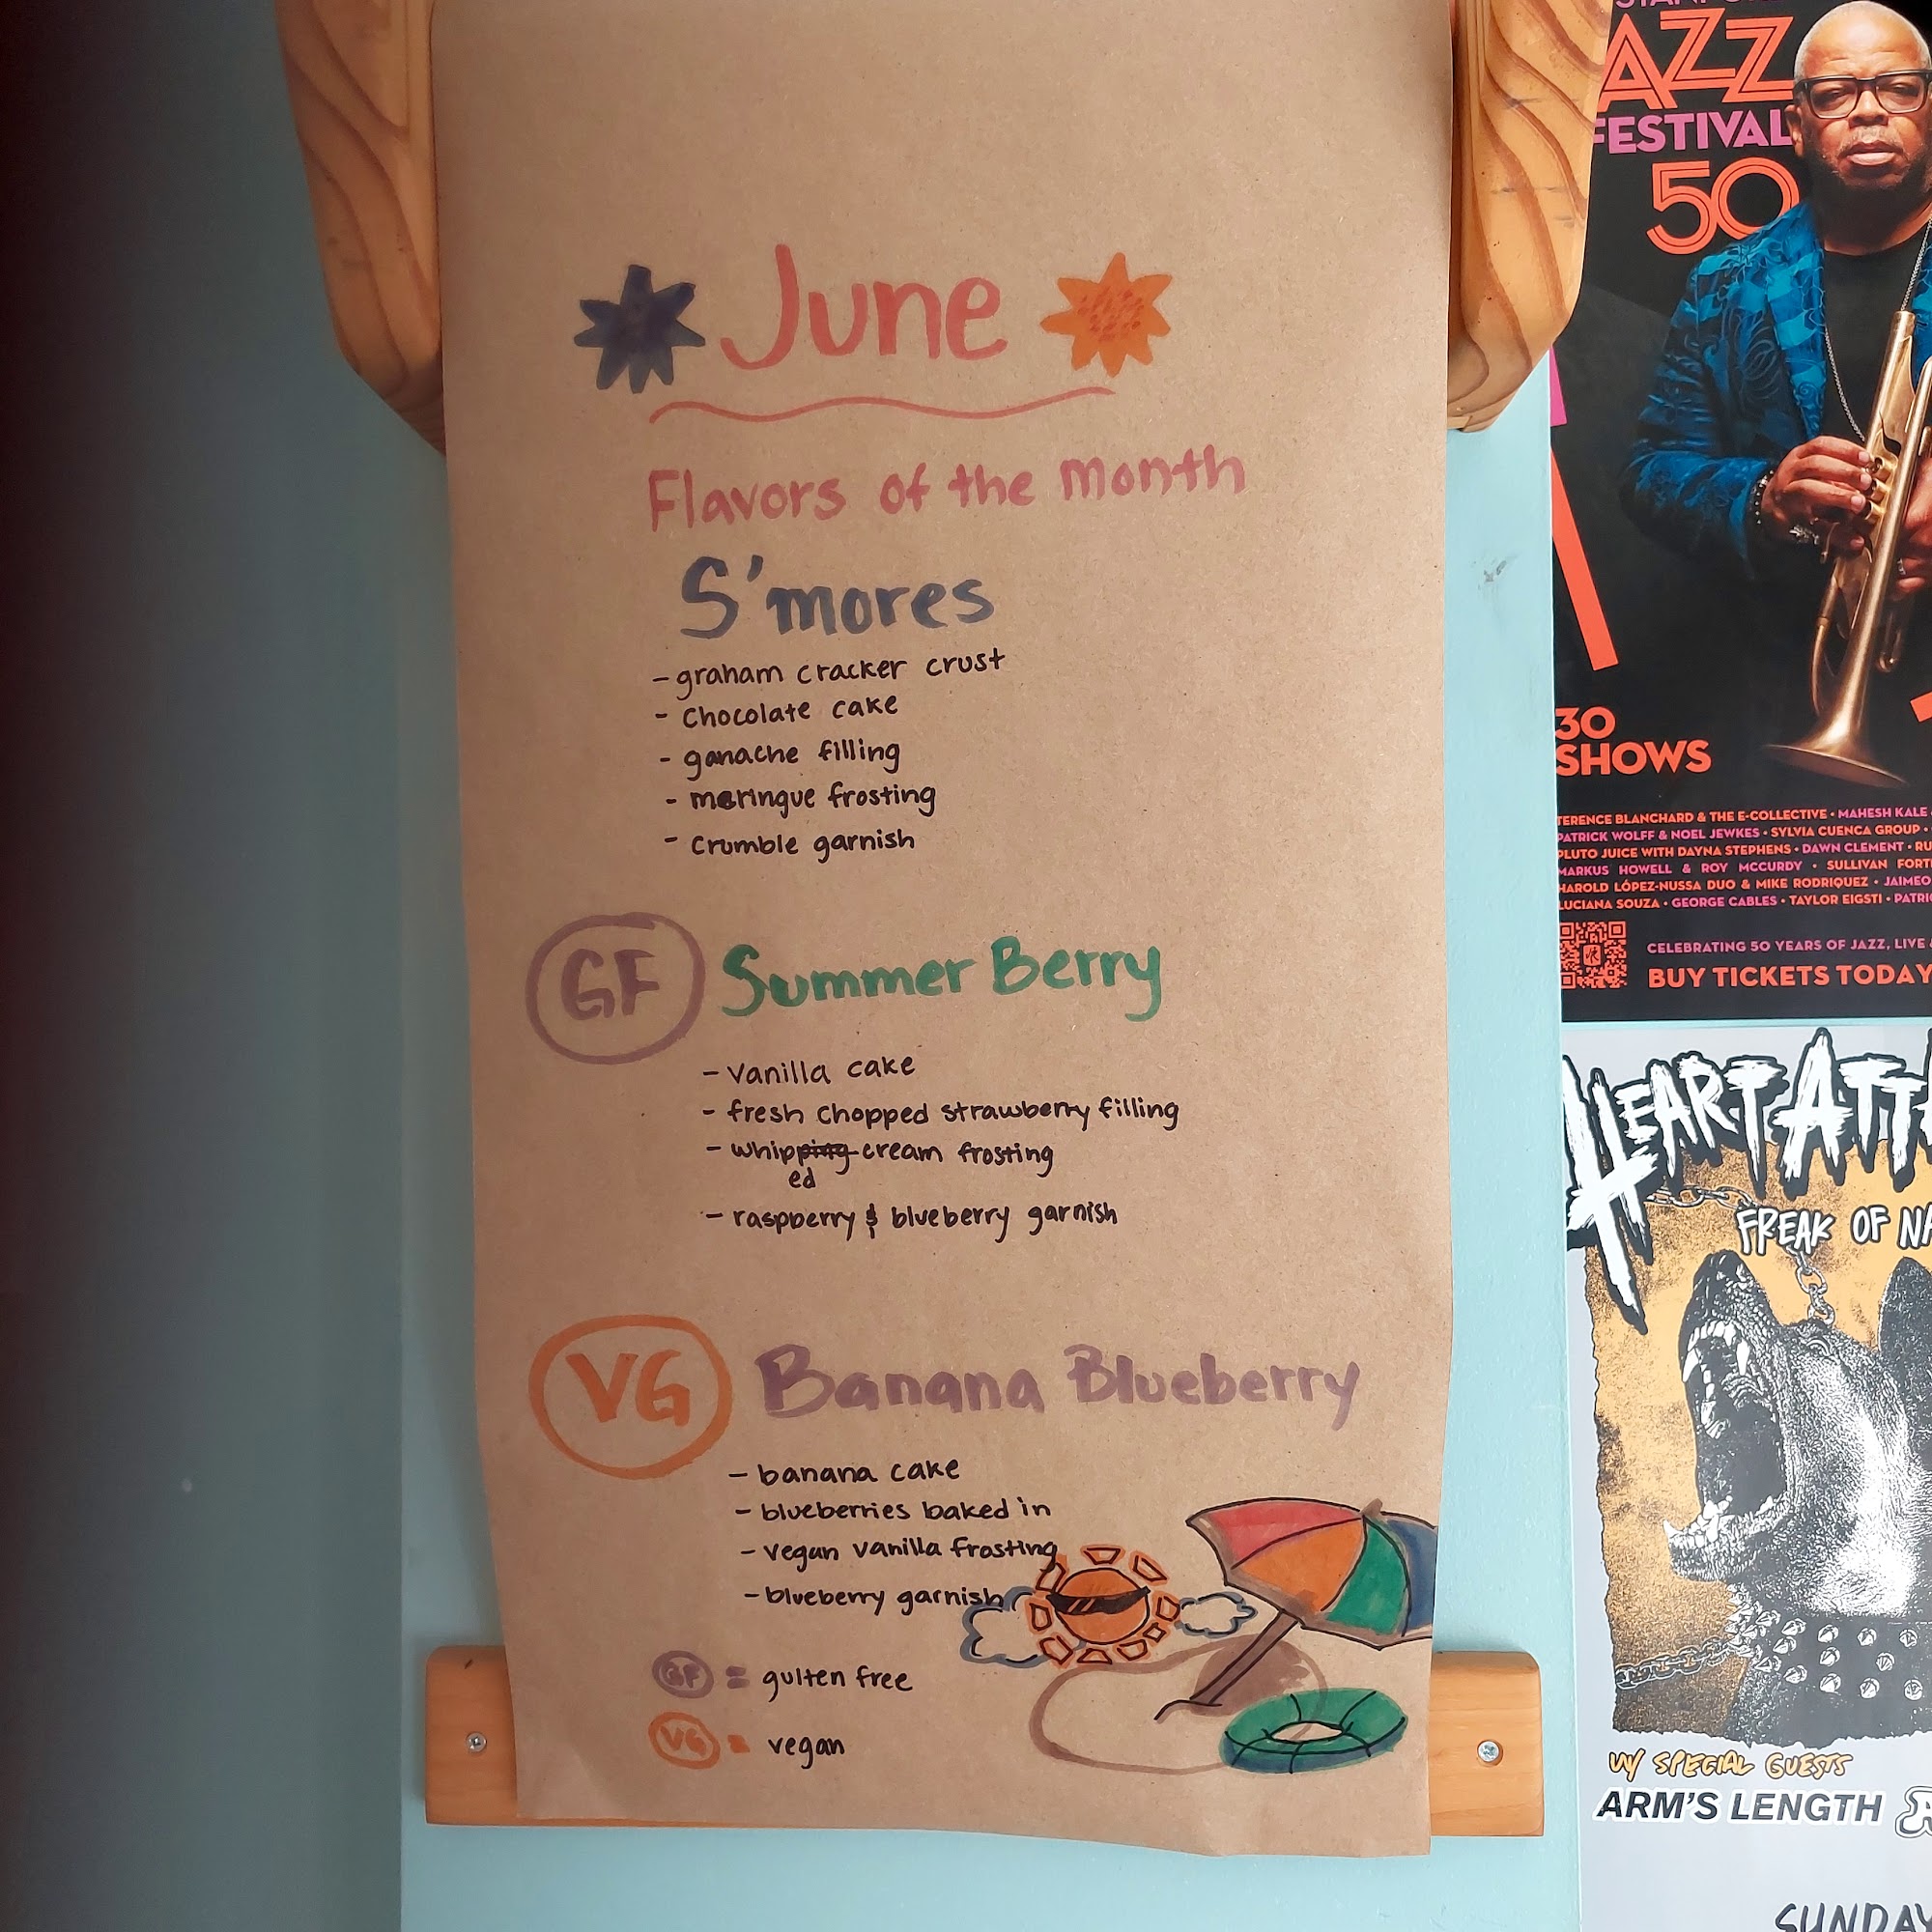 June
Flavors of the Month
S'mores
- graham cracker crust
- Chocolate cake
- ganache filling
- meringue frosting
- Crumble garnish
GF Summer Berry
- Vanilla cake
- fresh chopped strawberry filling
- whipping cream frosting
ed
- raspberry & blueberry garnish
VG Banana Blueberry
- banana cake
- blueberries baked in
- vegan vanilla frosting
- blueberry garnish
GF = gulten free
VG = vegan
JAZZ
FESTIVAL
50
30
SHOWS
TERENCE BLANCHARD & THE E-COLLECTIVE • MAHESH KALE
PATRICK WOLFF & NOEL JEWKES • SYLVIA CUENCA GROUP •
PLUTO JUICE WITH DAYNA STEPHENS • DAWN CLEMENT •
MARKUS HOWELL & ROY MCCURDY • SULLIVAN
HAROLD LÓPEZ-NUSSA DUO & MIKE RODRIQUEZ •
LUCIANA SOUZA • GEORGE CABLES • TAYLOR EIGSTI •
CELEBRATING 50 YEARS OF JAZZ, LIVE
BUY TICKETS TODAY
HEART ATT
FREAK OF NA
W/ SPECIAL GUESTS
ARM'S LENGTH
SUNDAY